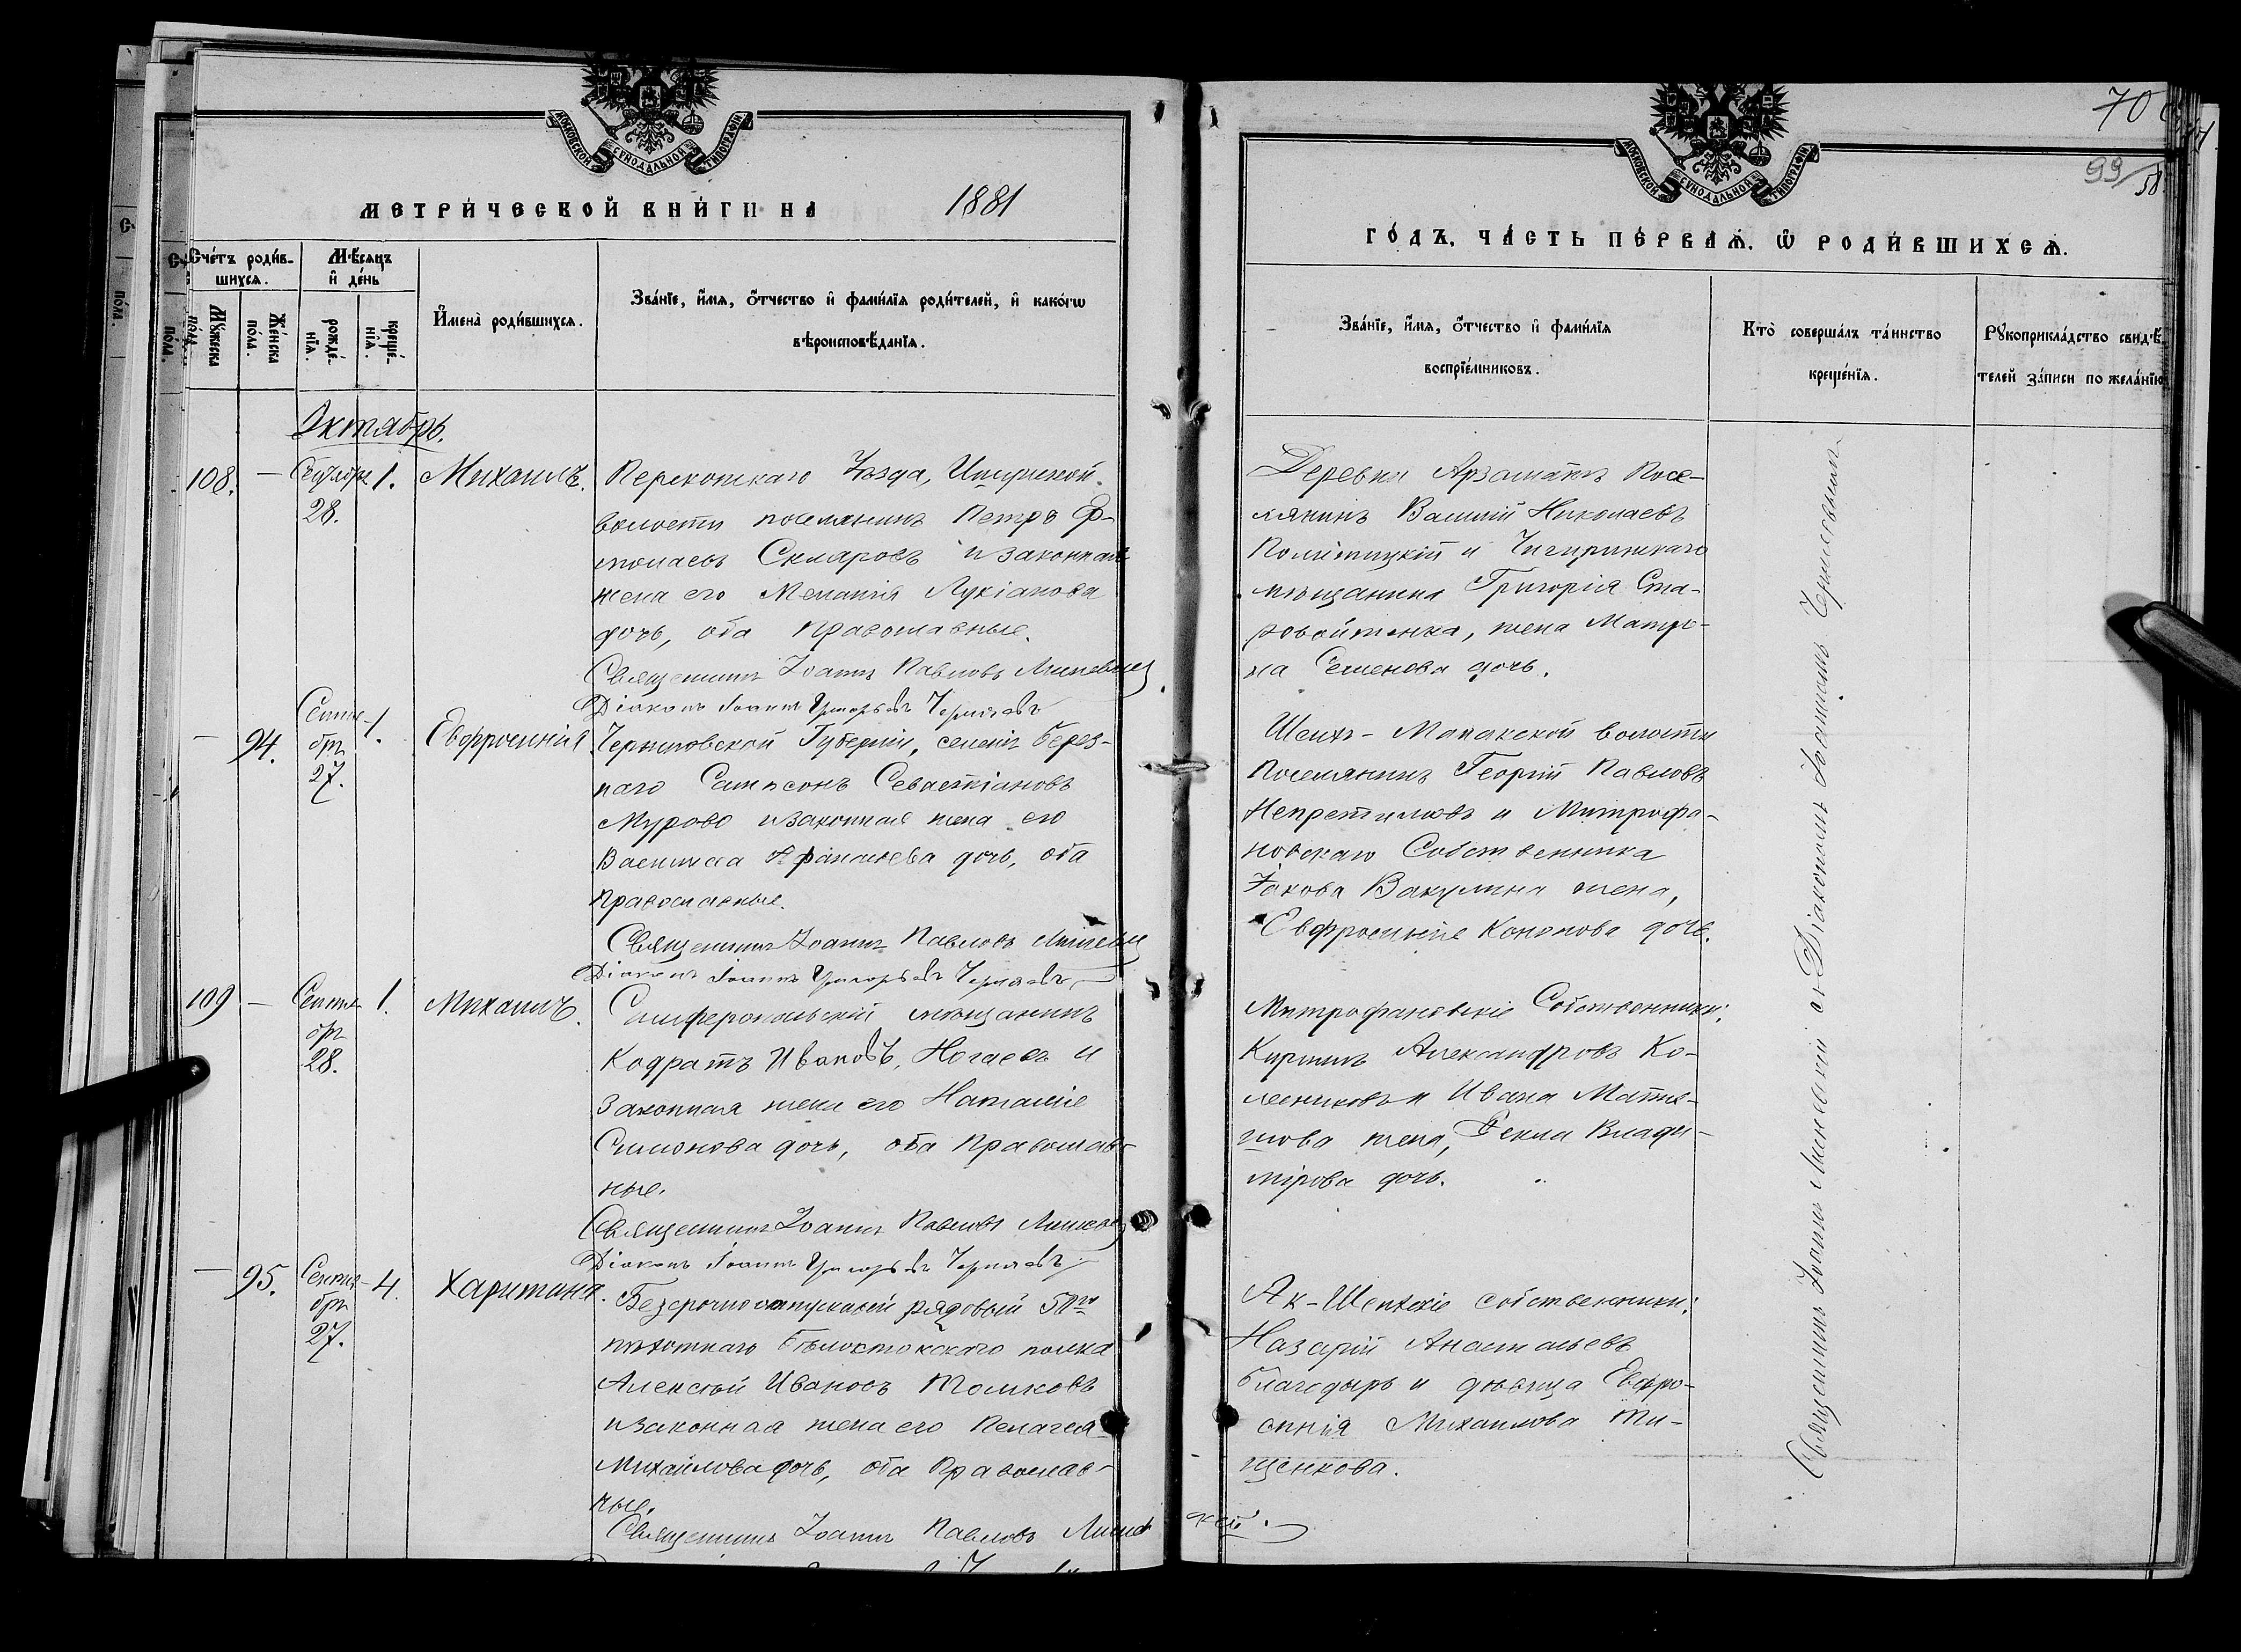 МОСКОВСКОЙ СѴНОДАЛЬНОЙ ТИПОГРАФІИ
МЕТРИ́ЧЕСКОЙ КНИ́ГИ НА 1881
Сче́тъ роди́в-
шихся.
Мѣ́сяцъ
и҆ де́нь
Му́жеска
по́ла.
Же́нска
по́ла.
рожде́-
нія.
креще́-
нія.
И҆мена̀ роди́вшихся.
Зва́нїе, и҆́мя, ѻ҆́тчество и҆ фами́лїя роди́телей, и҆ како́гѡ
вѣроисповѣ́данїя.
Октябрь.
108. — Сентябрь 28. 1. Михаилъ.
Перекопскаго Уѣзда,
волости поселянинъ Петръ
Скляровъ и законная
жена его Меланія Лукіанова
дочь, оба Православные.
Священникъ Іоаннъ Павловъ
Діаконъ Іоаннъ Григорьевъ
— 94. Сентя-
бря
27. 1. Евфросинія.
Черниговской Губерніи, селенія Берез-
наго Сампсонъ Севастіановъ
Мурово и законная жена его
Василиса Афанасьева дочь, оба
Православные.
Священникъ Іоаннъ Павловъ
Діаконъ Іоаннъ Григорьевъ
109 — Сентя-
бря
28. 1. Михаилъ.
Симферопольскій мѣщанинъ
Кодратъ Ивановъ Ногаевъ и
Законная жена его Наталія
Симонова дочь, оба Православ-
ные.
Священникъ Іоаннъ Павловъ
Діаконъ Іоаннъ Григорьевъ
— 95. Сентя-
бря
27. 4. Харитина.
Безсрочноотпускной рядовый 50го
пѣхотнаго Бѣлостокскаго полка
Алексѣй Ивановъ Толмковъ
и законная жена его Пелагея
Михайлова дочь, оба Православ-
ные.
Священникъ Іоаннъ Павловъ
70
99
58
МОСКОВСКОЙ СѴНОДАЛЬНОЙ ТИПОГРАФІИ
ГО́ДЪ, ЧА́СТЬ ПЕ́РВАЯ, Ѡ҆ РОДИ́ВШИХСЯ.
Зва́нїе, и҆́мя, ѻ҆́тчество и҆ фами́лїя
воспрїе́мниковъ.
Кто̀ соверша́лъ та́инство
креще́нїя.
Рꙋкоприкла́дство свидѣ́-
телей за́писи по жела́нїю
Деревни Посе-
лянинъ Василій Николаевъ
и Чигиринскаго
мѣщанина Григорія Ста-
ровойтенка, жена Матро-
на Семенова дочь.
волости
Поселянинъ Георгій Павловъ
и Митрофа-
новскаго Собственника
Іакова Вакулина жена,
Евфросинія Кононова дочь.
Митрофановскіе Собственники:
Кириллъ Александровъ Ко-
лесниковъ и Ивана
жена, Фекла Влади-
мірова дочь.
Ак-Шеихскіе собственники:
Назарій Анастасьевъ
Благодыръ и дѣвица Евфро-
синія Михайлова Ти-
щенкова.
Священникъ Іоаннъ съ Діакономъ Іоанномъ